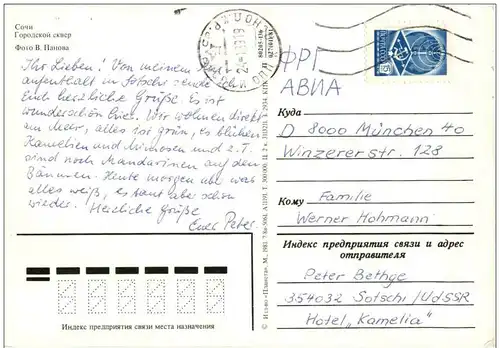 Сочи
Городской сквер
Фото В. Панова
Ihr Lieben! Von meinem
aufenthalt in Sotschi sende ich
Euch herzliche Grüße. Es ist
wunderschön hier. Wir wohnen direkt
am Meer, alles ist grün, es blühen
Kamelien und Mimosen und z.T.
sind noch Mandarinen auf den
Bäumen. Heute morgen war
alles weiß, es taut aber schon
wieder. Herzliche Grüße
Euer Peter
Индекс предприятия связи места назначения
ФРГ
АВИА
Куда
D 8000 München 40
Winzererstr. 128
Кому
Familie
Werner Hohmann
Индекс предприятия связи и адрес
отправителя
Peter Bethge
354032 Sotschi/UdSSR
Hotel „Kamelia"